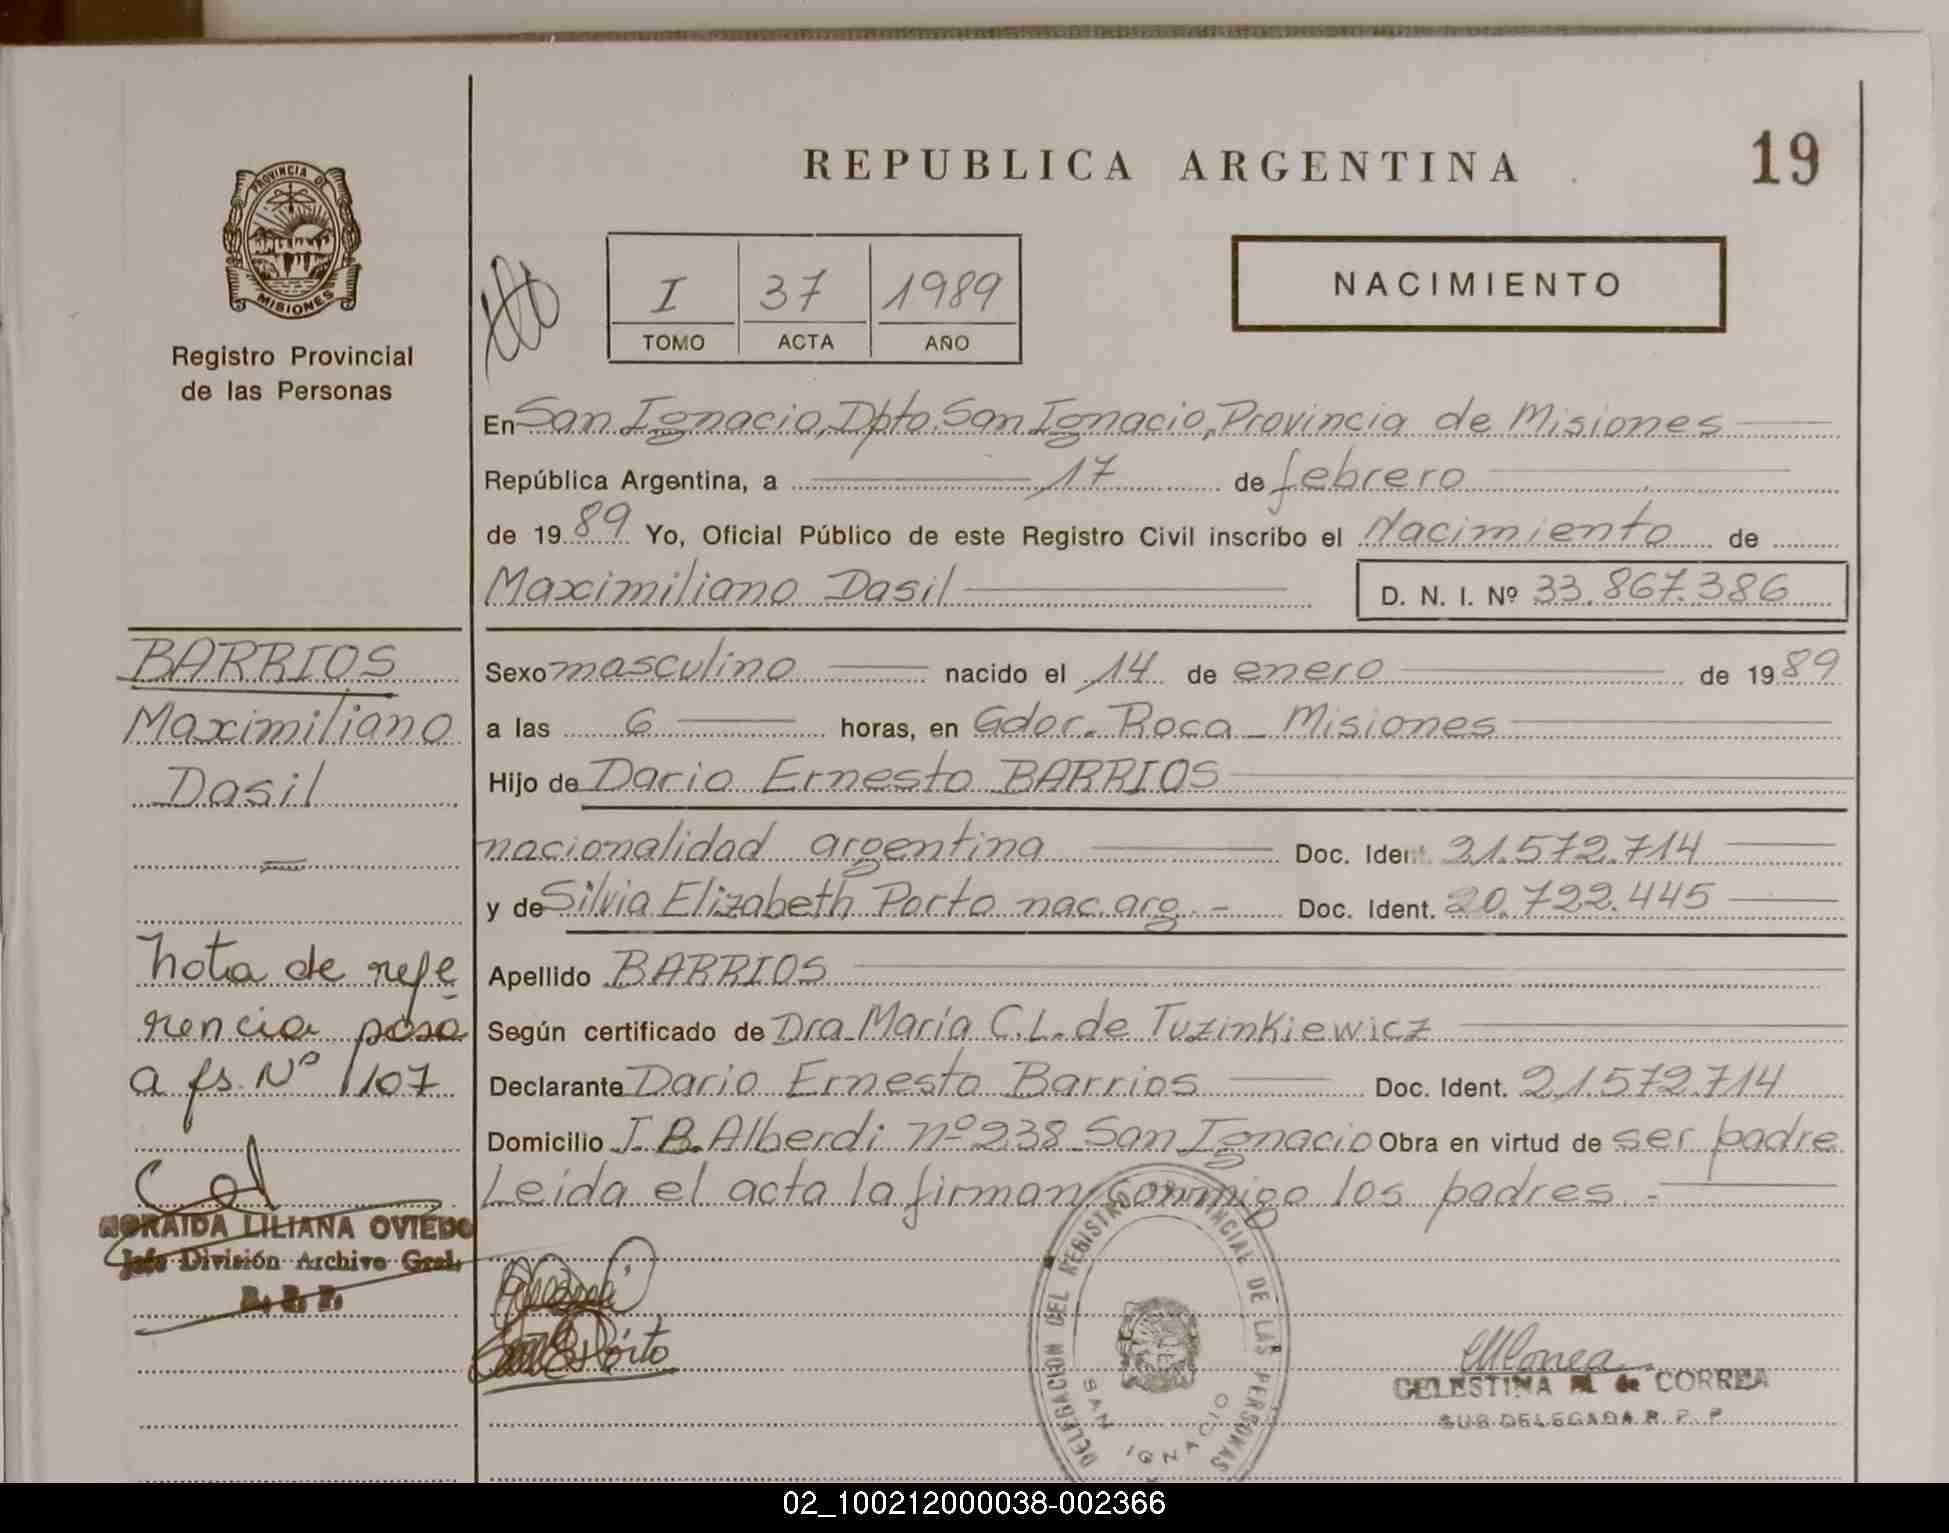 REPUBLICA ARGENTINA
19
PROVINCIA DE
MISIONES
Registro Provincial
de las Personas
I 37 1989
TOMO ACTA AÑO
NACIMIENTO
En San Ignacio, Dpto. San Ignacio, Provincia de Misiones
República Argentina, a 17 de febrero
de 1989 Yo, Oficial Público de este Registro Civil inscribo el Nacimiento de
Maximiliano Dasil D. N. I. Nº 33.867.386
BARRIOS
Maximiliano
Dasil
Sexo masculino nacido el 14 de enero de 1989
a las 6 horas, en Gdor. Roca - Misiones
Hijo de Dario Ernesto BARRIOS
nacionalidad argentina Doc. Ident. 21.572.714
y de Silvia Elizabeth Porto nac. arg. - Doc. Ident. 20.722.445
Apellido BARRIOS
Según certificado de Dra. María C.L. de Tuzinkiewicz
Declarante Dario Ernesto Barrios Doc. Ident. 21.572.714
Domicilio J.B. Alberdi nº 238 San Ignacio Obra en virtud de ser padre
Leída el acta la firman conmigo los padres. -
Nota de refe
rencia pasa
a fs. Nº 107
NORAIDA LILIANA OVIEDO
Jefe División Archivo Gral.
R. P. P.
DELEGACION DEL REGISTRO PROVINCIAL DE LAS PERSONAS
SAN IGNACIO
CELESTINA M. de CORREA
SUB DELEGADA R. P. P.
02_100212000038-002366